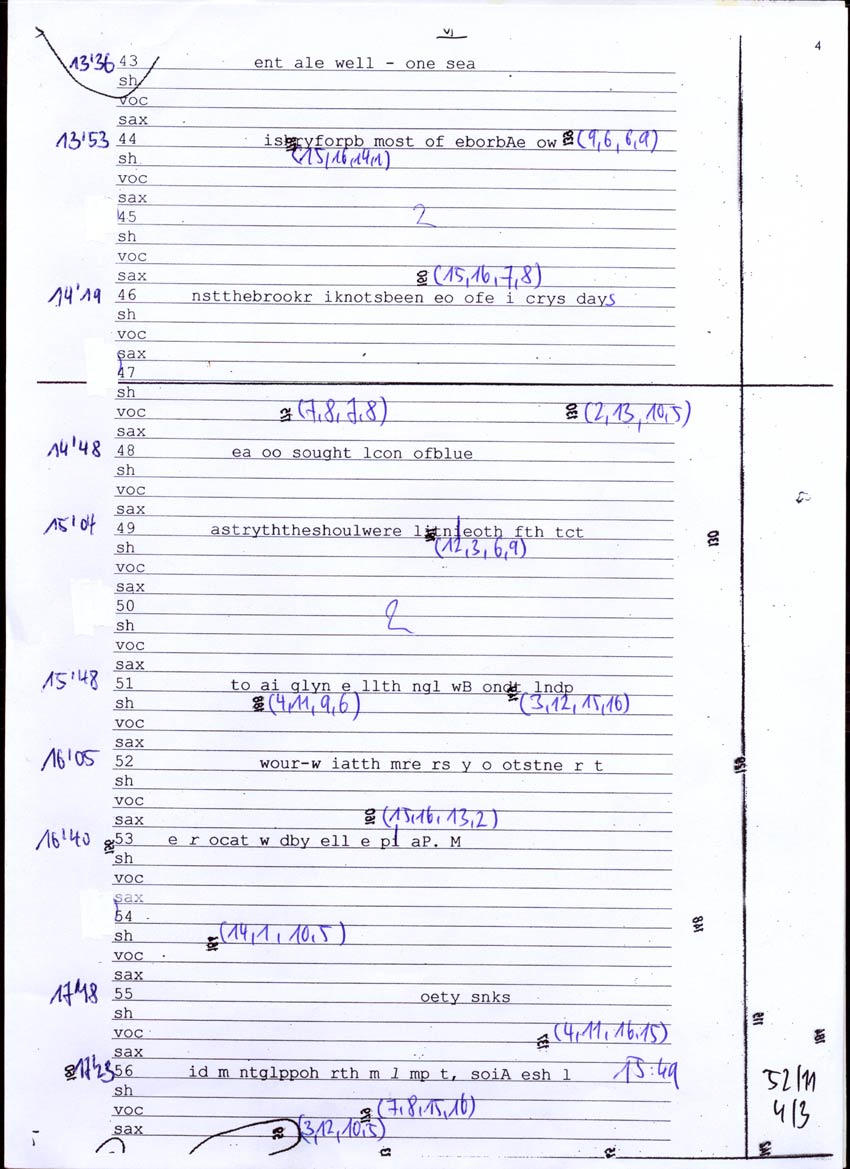 vi
4
13'36 43 ent ale well - one sea
sh
voc
sax
13'53 44 isbryforpb most of eborbAe ow (9,6,6,9)
sh (15,16,14,1)
voc
sax
45 2
sh
voc
sax (15,16,7,8)
14'19 46 nstthebrookr iknotsbeen eo ofe i crys days
sh
voc
sax
47
sh
voc (7,8,7,8) (2,13,10,5)
sax
14'48 48 ea oo sought lcon ofblue
sh
voc
sax
15'04 49 astryththeshoulwere eoth fth tct
sh (12,3,6,9)
voc
sax
50
sh 2
voc
sax
15'48 51 to ai glyn e llth ngl wB lndp
sh (4,11,9,6) (3,12,15,16)
voc
sax
16'05 52 wour-w iatth mre rs y o otstne r t
sh
voc
sax (15,16,13,2)
16'40 53 e r ocat w dby ell e pl aP. M
sh
voc
sax
54
sh (14,1,10,5)
voc
sax
17'18 55 oety snks
sh
voc (4,11,16,15)
sax
17'23 56 id m ntglppoh rth m l mp t, soiA esh l 15:49
sh
voc (7,8,15,16)
sax (3,12,10,5)
52/11
4/3